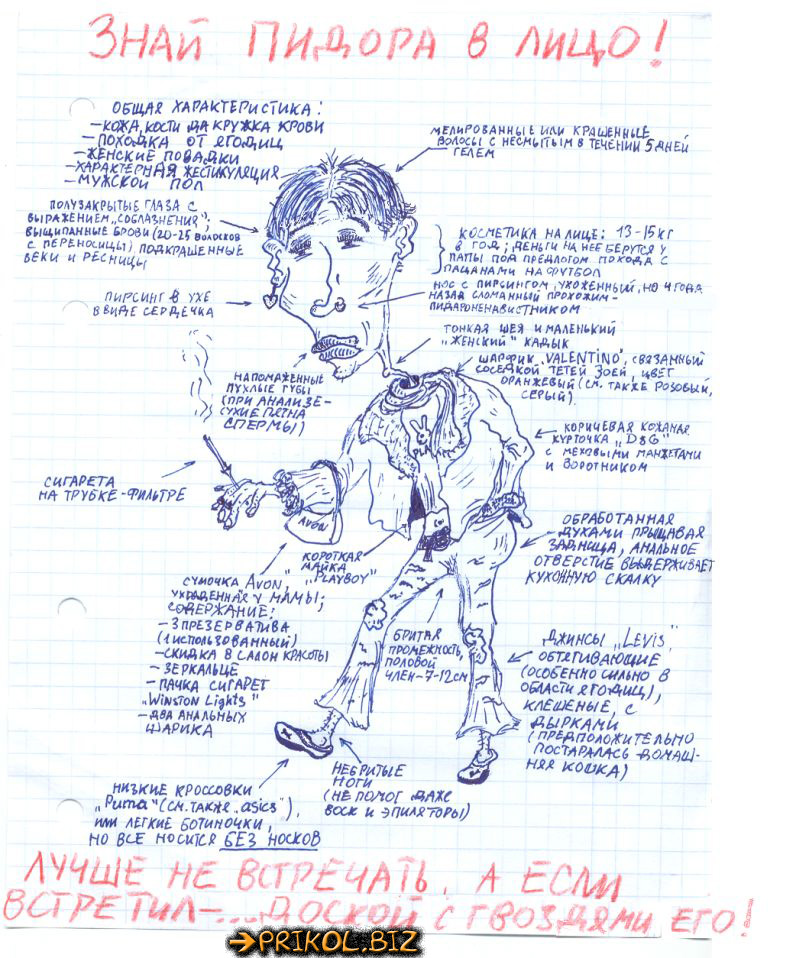 ЗНАЙ ПИДОРА В ЛИЦО!
ОБЩАЯ ХАРАКТЕРИСТИКА:
-КОЖА, КОСТИ ДА КРУЖКА КРОВИ
-ПОХОДКА ОТ ЯГОДИЦ
-ЖЕНСКИЕ ПОВАДКИ
-ХАРАКТЕРНАЯ ЖЕСТИКУЛЯЦИЯ
-МУЖСКОЙ ПОЛ
МЕЛИРОВАННЫЕ ИЛИ КРАШЕННЫЕ
ВОЛОСЫ С НЕСМЫТЫМ В ТЕЧЕНИИ 5 ДНЕЙ
ГЕЛЕМ
ПОЛУЗАКРЫТЫЕ ГЛАЗА С
ВЫРАЖЕНИЕМ „СОБЛАЗНЕНИЯ",
ВЫЩИПАННЫЕ БРОВИ (20-25 ВОЛОСКОВ
С ПЕРЕНОСИЦЫ) ПОДКРАШЕННЫЕ
ВЕКИ И РЕСНИЦЫ
КОСМЕТИКА НА ЛИЦЕ: 13-15 КГ
В ГОД; ДЕНЬГИ НА НЕЕ БЕРУТСЯ У
ПАПЫ ПОД ПРЕДЛОГОМ ПОХОДА С
ПАЦАНАМИ НА ФУТБОЛ
ПИРСИНГ В УХЕ
В ВИДЕ СЕРДЕЧКА
НОС С ПИРСИНГОМ, УХОЖЕННЫЙ, НО 4 ГОДА
НАЗАД СЛОМАННЫЙ ПРОХОЖИМ-
ПИДАРОНЕНАВИСТНИКОМ
ТОНКАЯ ШЕЯ И МАЛЕНЬКИЙ
„ЖЕНСКИЙ" КАДЫК
НАПОМАЖЕННЫЕ
ПУХЛЫЕ ГУБЫ
(ПРИ АНАЛИЗЕ-
СУХИЕ ПЯТНА
СПЕРМЫ)
ШАРФИК „VALENTINO", СВЯЗАННЫЙ
СОСЕДКОЙ ТЕТЕЙ ЗОЕЙ, ЦВЕТ
ОРАНЖЕВЫЙ (СМ. ТАКЖЕ РОЗОВЫЙ,
СЕРЫЙ).
КОРИЧЕВАЯ КОЖАНАЯ
КУРТОЧКА „D&G"
С МЕХОВЫМИ МАНЖЕТАМИ
И ВОРОТНИКОМ
СИГАРЕТА
НА ТРУБКЕ-ФИЛЬТРЕ
AVON
ОБРАБОТАННАЯ
ДУХАМИ ПРЫЩАВАЯ
ЗАДНИЦА, АНАЛЬНОЕ
ОТВЕРСТИЕ ВЫДЕРЖИВАЕТ
КУХОННУЮ СКАЛКУ
КОРОТКАЯ
МАЙКА
„PLAYBOY"
СУМОЧКА „AVON",
УКРАДЕННАЯ У МАМЫ;
СОДЕРЖАНИЕ:
- 3 ПРЕЗЕРВАТИВА
(1 ИСПОЛЬЗОВАННЫЙ)
-СКИДКА В САЛОН КРАСОТЫ
- ЗЕРКАЛЬЦЕ
- ПАЧКА СИГАРЕТ
„Winston Lights"
- ДВА АНАЛЬНЫХ
ШАРИКА
БРИТАЯ
ПРОМЕЖНОСТЬ,
ПОЛОВОЙ
ЧЛЕН-7-12 СМ
ДЖИНСЫ „LEVIS"
ОБТЯГИВАЮЩИЕ
(ОСОБЕННО СИЛЬНО В
ОБЛАСТИ ЯГОДИЦ),
КЛЕШЕНЫЕ, С
ДЫРКАМИ
(ПРЕДПОЛОЖИТЕЛЬНО
ПОСТАРАЛАСЬ ДОМАШ-
НЯЯ КОШКА)
НЕБРИТЫЕ
НОГИ
(НЕ ПОМОГ ДАЖЕ
ВОСК И ЭПИЛЯТОРЫ)
НИЗКИЕ КРОССОВКИ
„Puma" (СМ. ТАКЖЕ „asics"),
ИЛИ ЛЕГКИЕ БОТИНОЧКИ,
НО ВСЕ НОСИТСЯ БЕЗ НОСКОВ
ЛУЧШЕ НЕ ВСТРЕЧАТЬ, А ЕСЛИ
ВСТРЕТИЛ-...ДОСКОЙ С ГВОЗДЯМИ ЕГО!
PRIKOL.BIZ